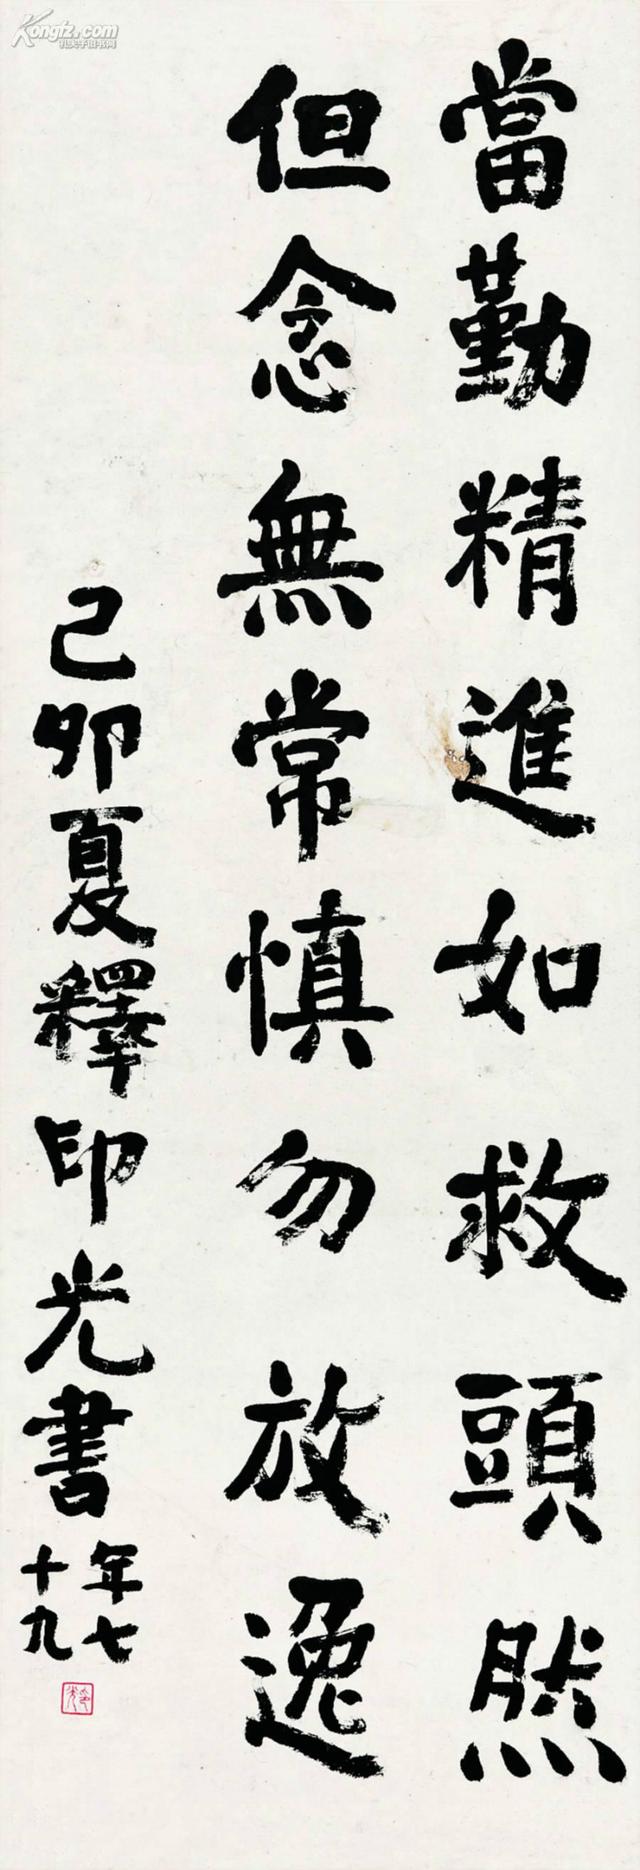 當勤精進如救頭然
但念無常慎勿放逸
己卯夏釋印光書
年七
十九
印光
Kongfz.com
孔夫子旧书网